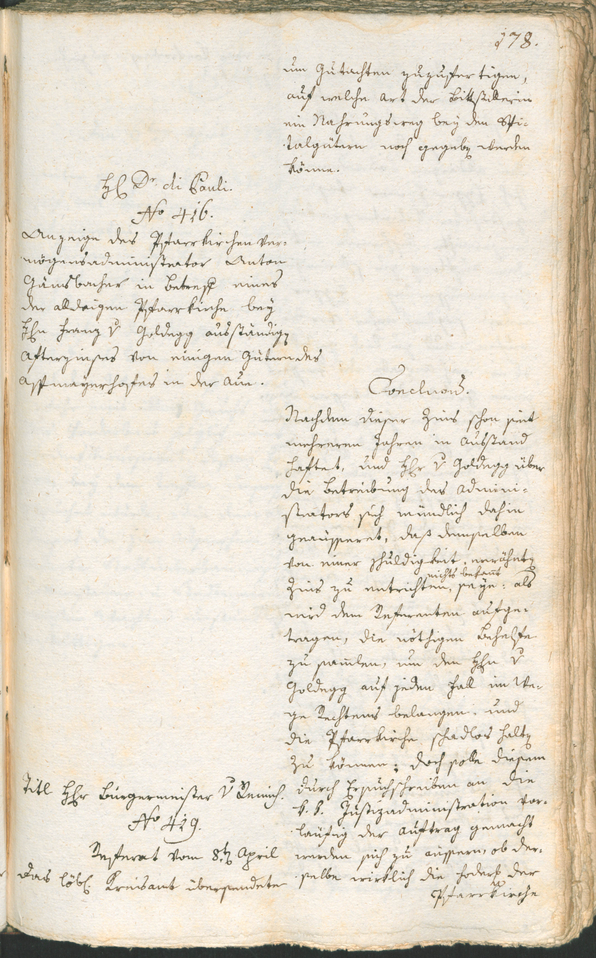 178.
um Gutachten zuzufertigen,
auf welche Art der Bittstellerin
ein Nahrungsweg bey den Spi-
talgütern noch gegeben werden
könne.
H Dr. di Pauli.
No 416.
Anzeige des Pfarrkirchenver-
mögensadministrator Anton
Gänsbacher in Betreff eines
der alldaigen Pfarrkirche bey
Hhn Franz v Goldegg ausständigen
Afterzinses von einigen Gütern des
Assmayerhofes in der Aue.
Conclusum.
Nachdem dieser Zins schon seit
mehreren Jahren in Ausstand
haftet, und Hhr v Goldegg über
die Betreibung des Admini-
strators sich mündlich dahin
geäusseret, daß demselben
von einer Schuldigkeit erwähnten
nichts bekannt
Zins zu entrichten, seye: als
wird dem Referenten aufge-
tragen, die nöthigen Behelfe
zu sammlen, um den Hhn v
Goldegg auf jeden Fall im We-
ge Rechtens belangen, und
die Pfarrkirche schadlos halten
zu können; doch solle diesem
durch Ersuchschreiben an die
k. k. Justizadministration vor-
läufig der Auftrag gemacht
werden sich zu äussern, ob der-
selbe wirklich die Foderung der
Pfarrkirche
Titl Hhr Bürgermeister v Remich.
No 419.
Referat vom 8ten April
Das löbl. Kreisamt übersendete